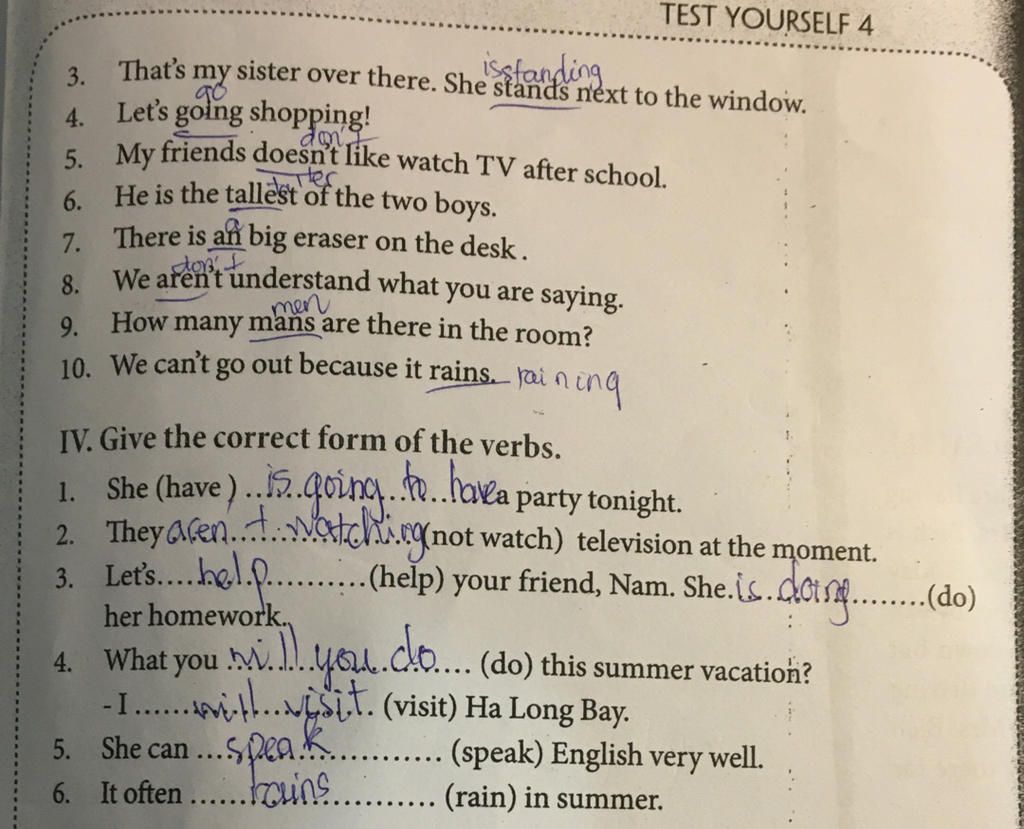 TEST YOURSELF 4
is standing
3. That's my sister over there. She stands next to the window.
go
4. Let's going shopping!
don't
5. My friends doesn't like watch TV after school.
6. He is the tallest of the two boys.
a
7. There is an big eraser on the desk.
don't
8. We aren't understand what you are saying.
men
9. How many mans are there in the room?
10. We can't go out because it rains. raining
IV. Give the correct form of the verbs.
1. She (have) ..is going to have a party tonight.
2. They aren't watching (not watch) television at the moment.
3. Let's....help..........(help) your friend, Nam. She.is doing........(do)
her homework.
4. What you will you do.... (do) this summer vacation?
- I ......will visit. (visit) Ha Long Bay.
5. She can ...speak............ (speak) English very well.
6. It often ......rains............ (rain) in summer.